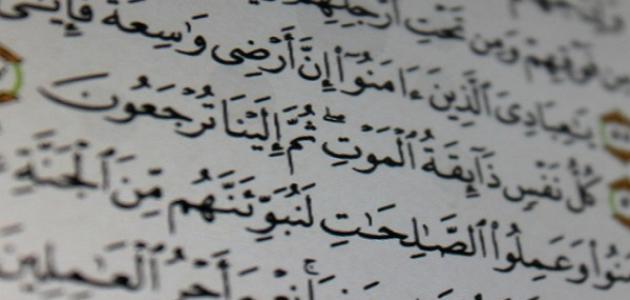 مِن فَوْقِهِمْ وَمِن تَحْتِ أَرْجُلِهِمْ
يَٰعِبَادِىَ ٱلَّذِينَ ءَامَنُوٓا۟ إِنَّ أَرْضِى وَٰسِعَةٌ فَإِيَّٰىَ
كُلُّ نَفْسٍ ذَآئِقَةُ ٱلْمَوْتِ ۖ ثُمَّ إِلَيْنَا تُرْجَعُونَ
وَعَمِلُوا۟ ٱلصَّٰلِحَٰتِ لَنُبَوِّئَنَّهُم مِّنَ ٱلْجَنَّةِ
نِعْمَ أَجْرُ ٱلْعَٰمِلِينَ